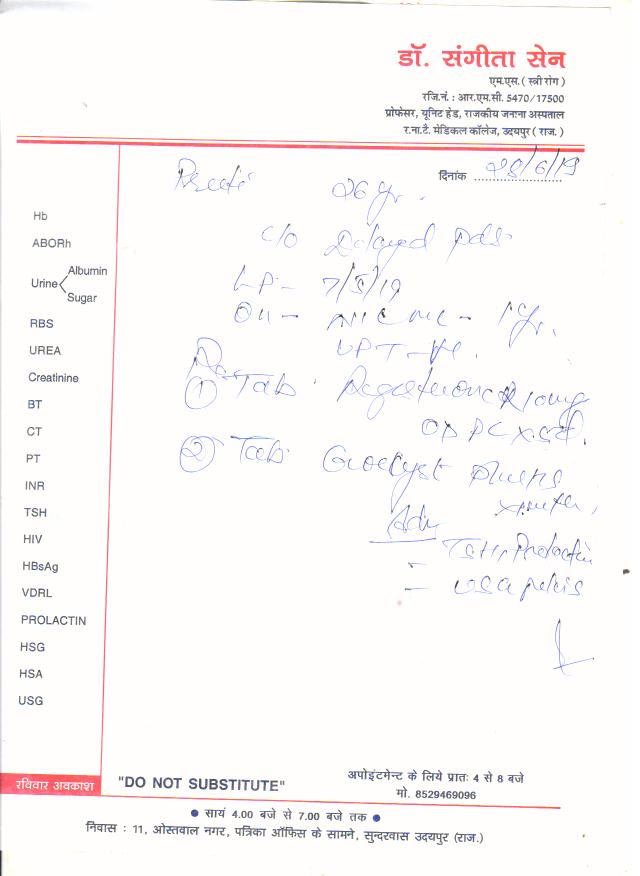 डॉ. संगीता सेन
एम.एस. ( स्त्री रोग )
रजि.नं. : आर.एम.सी. 5470/17500
प्रोफेसर, यूनिट हेड, राजकीय जनाना अस्पताल
र.ना.टै. मेडिकल कॉलेज, उदयपुर ( राज. )
दिनांक 28/6/19
26 Yr.
c/o Delayed pds
LP - 7/5/19
UPT -ve
① Tab.
② Tab.
Adv
- TSH, Prolactin
- USG pelvis
Hb
ABORh
Urine Albumin
Sugar
RBS
UREA
Creatinine
BT
CT
PT
INR
TSH
HIV
HBsAg
VDRL
PROLACTIN
HSG
HSA
USG
रविवार अवकाश
"DO NOT SUBSTITUTE"
अपोइंटमेन्ट के लिये प्रातः 4 से 8 बजे
मो. 8529469096
● सायं 4.00 बजे से 7.00 बजे तक ●
निवास : 11, ओस्तवाल नगर, पत्रिका ऑफिस के सामने, सुन्दरवास उदयपुर (राज.)